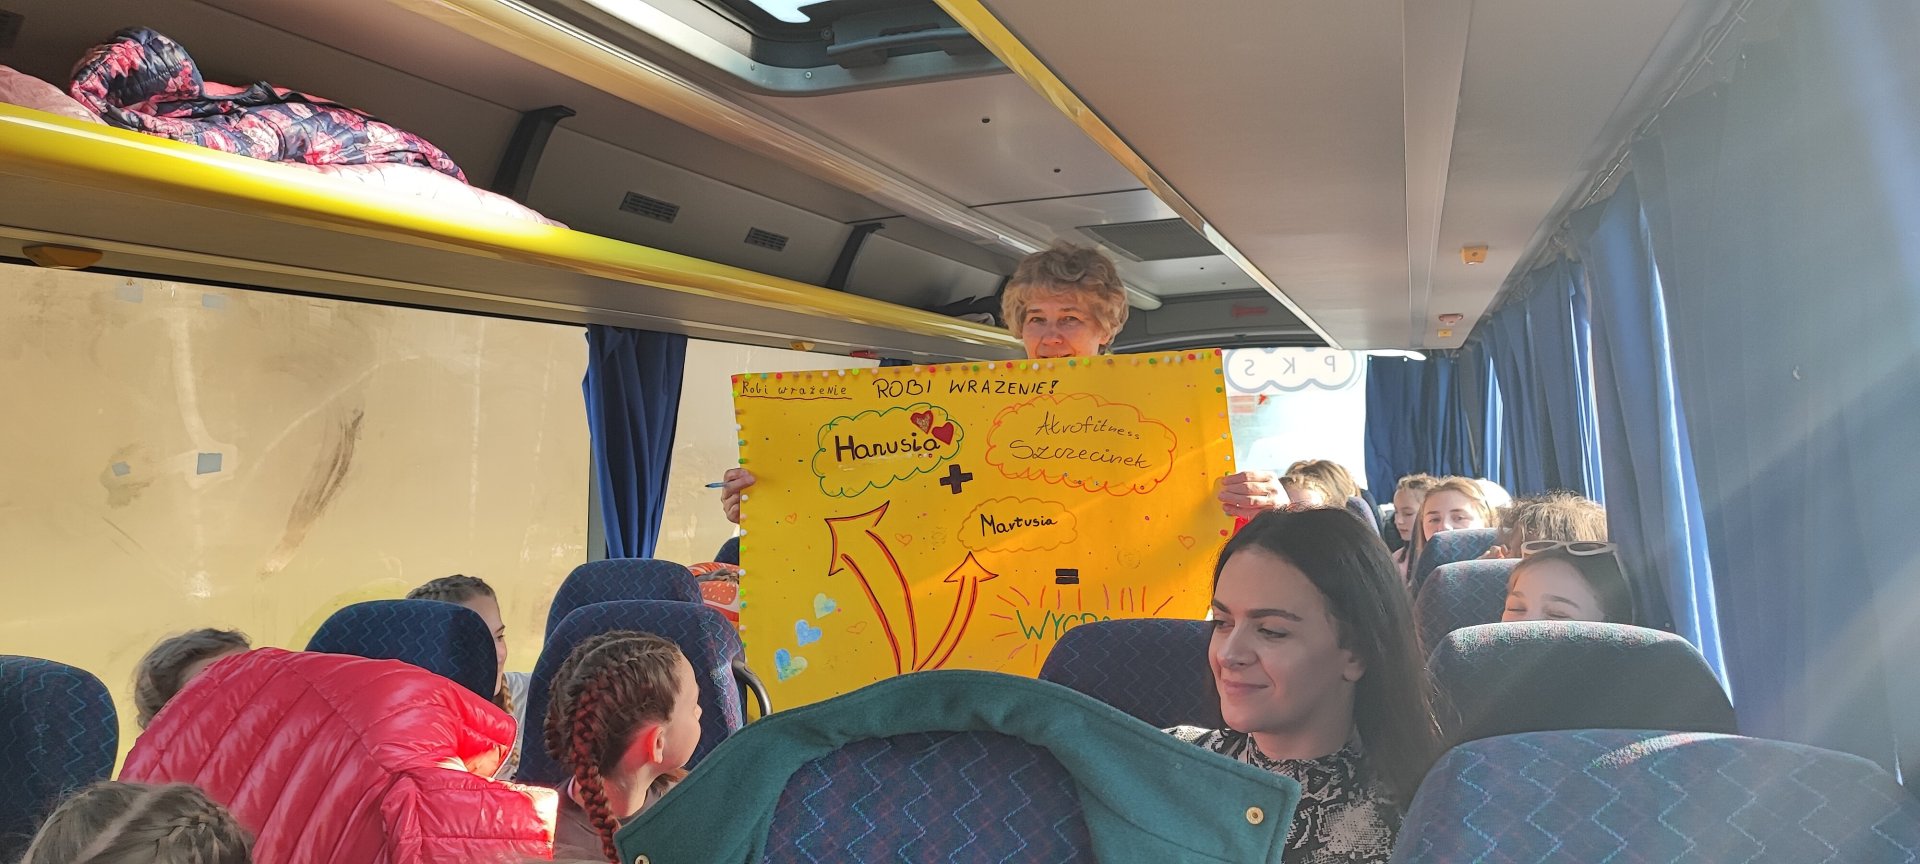 Robi wrażenie
ROBI WRAŻENIE!
Hanusia
+
Akrofitness
Szczecinek
Martusia
=
PKS